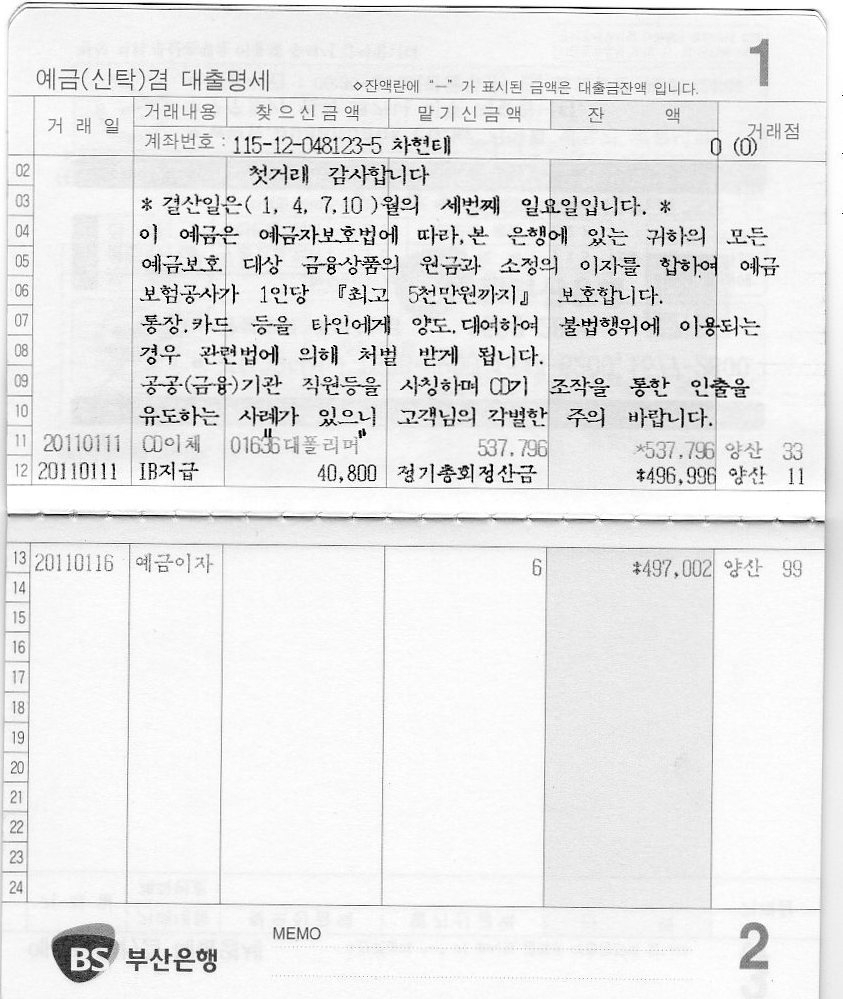 1
예금(신탁)겸 대출명세 ◇잔액란에 "–" 가 표시된 금액은 대출금잔액 입니다.
거 래 일 거래내용 찾으신금액 맡기신금액 잔 액 거래점
계좌번호 : 115-12-048123-5 차현태 0 (0)
02 첫거래 감사합니다
03 * 결산일은( 1, 4, 7,10 )월의 세번째 일요일입니다. *
04 이 예금은 예금자보호법에 따라,본 은행에 있는 귀하의 모든
05 예금보호 대상 금융상품의 원금과 소정의 이자를 합하여 예금
06 보험공사가 1인당 『최고 5천만원까지』 보호합니다.
07 통장,카드 등을 타인에게 양도,대여하여 불법행위에 이용되는
08 경우 관련법에 의해 처벌 받게 됩니다.
09 공공(금융)기관 직원등을 사칭하며 CD기 조작을 통한 인출을
10 유도하는 사례가 있으니 고객님의 각별한 주의 바랍니다.
11 20110111 CD이체 01636대폴리머 537,796 *537,796 양산 33
12 20110111 IB지급 40,800 정기총회정산금 *496,996 양산 11
13 20110116 예금이자 6 *497,002 양산 99
14
15
16
17
18
19
20
21
22
23
24
MEMO
BS 부산은행
2